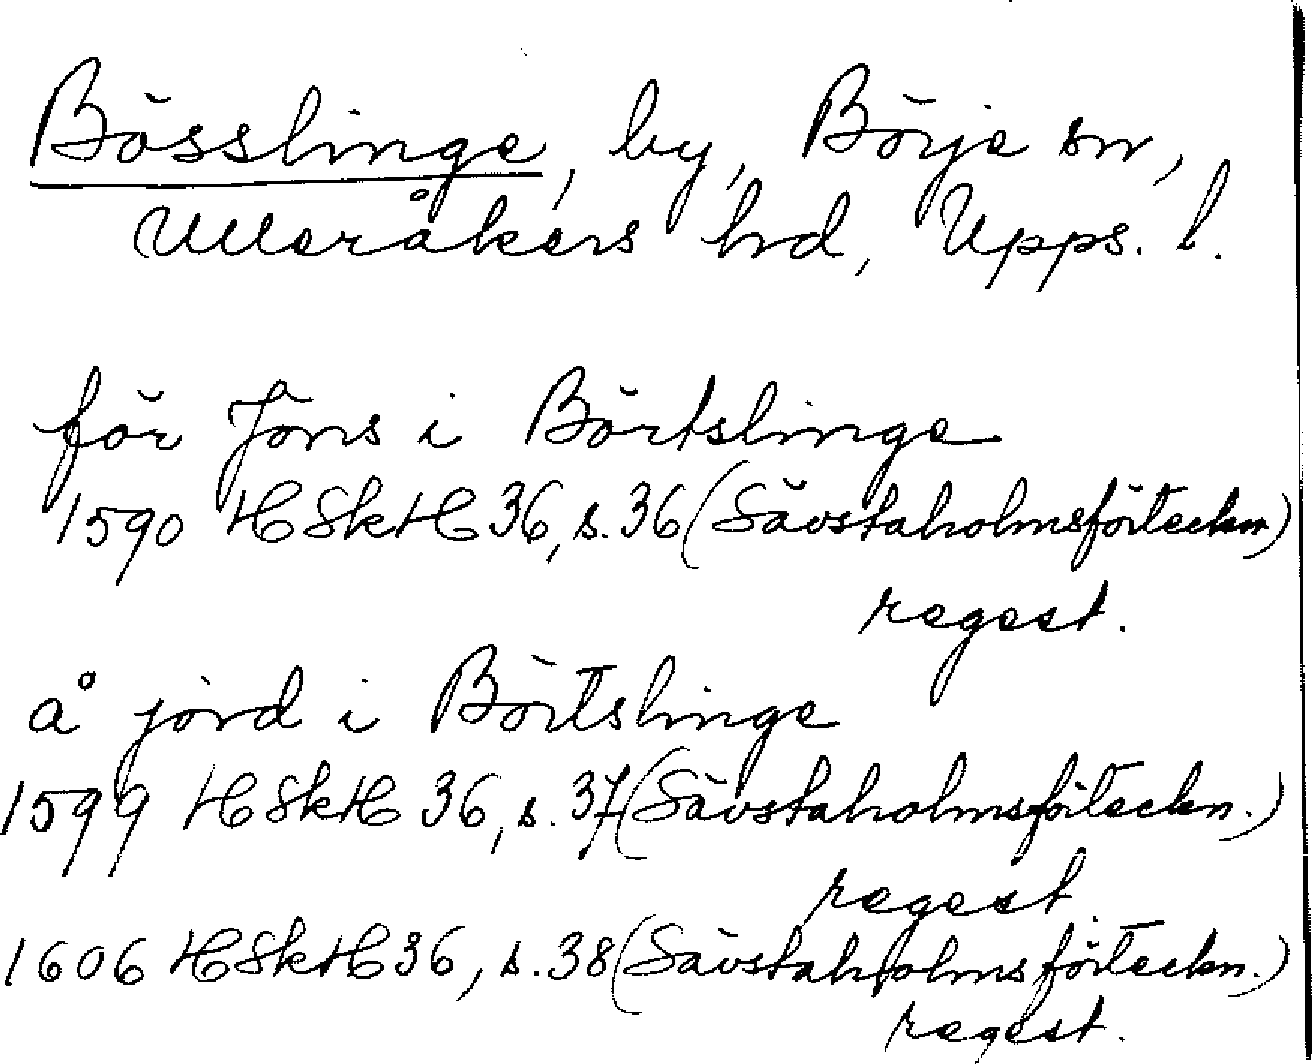 Bösslinge, by, Börje sn,
Ulleråkers hd, Upps. l.
för Jöns i Börtslinge
1590 HSkH 36, s. 36 (Sävstaholmsförteckn)
regest.
å jord i Börtslinge
1599 HSkH 36, s. 37 (Sävstaholmsförteckn.)
regest
1606 HSkH 36, s. 38 (Sävstaholmsförteckn.)
regest.